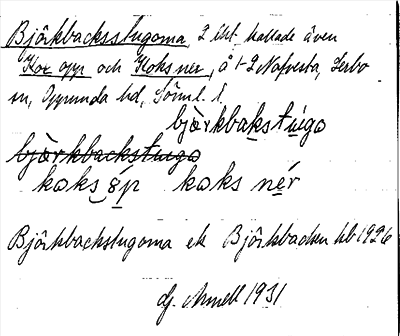 Björkbacksstugorna, 2 lht kallade även
Kox opp och Koks ner, å 1-2 Nafversta, Lerbo
sn, Oppunda hd, Söml. l.
bjòrkbakstúgo
bjòrkbackstuugo
koks óp koks nér
Björkbackstugorna ek Björkbacken hb 1926
dj. 1931